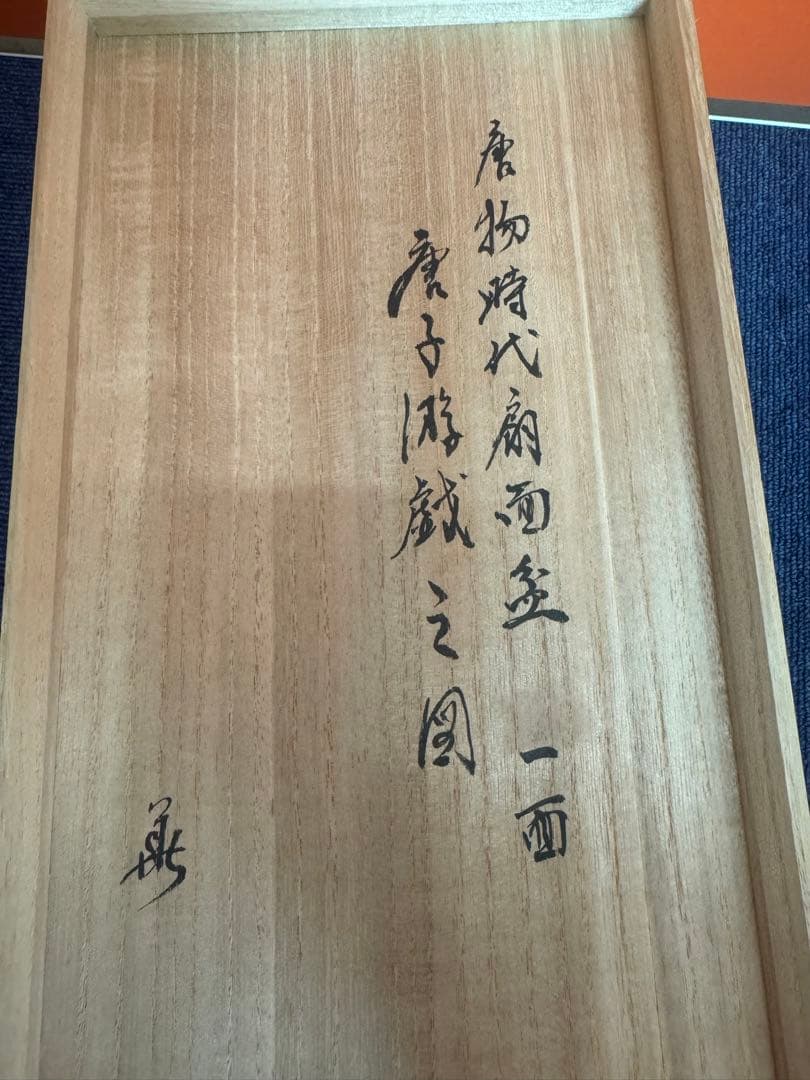 唐物時代扇面盆 一面
唐子游戯之圖